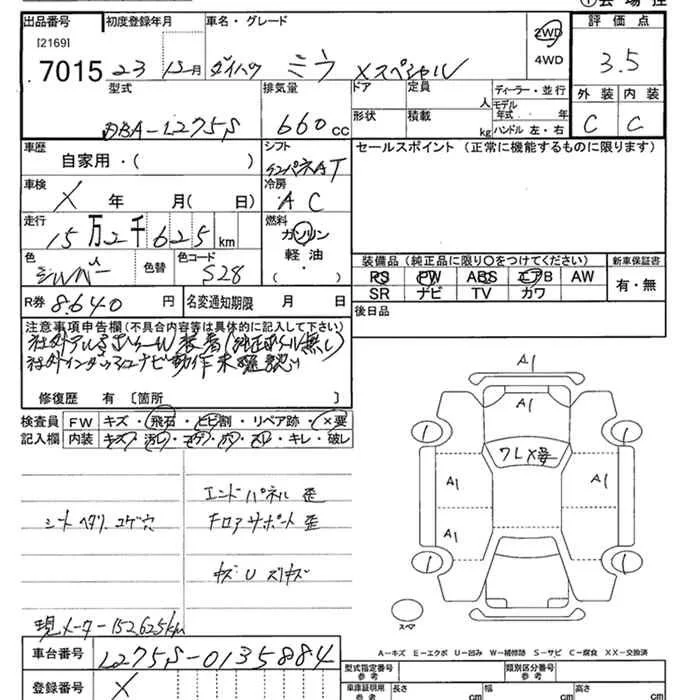 出品番号 初度登録年月 車名・グレード 2WD 評価点
[2169] 7015 23 12月 ダイハツ ミラ Xスペシャル 4WD 3.5
型式 排気量 ドア 定員 人 ディーラー・並行 外装 内装
DBA-L275S 660 cc 形状 積載 kg モデル年式 年 ハンドル 左・右 C C
車歴 シフト セールスポイント (正常に機能するものに限ります)
自家用・( ) インパネAT
車検 冷房
X 年 月( 日) AC
走行 燃料
15万2千625km ガソリン
色 色替 色コード 軽油 装備品 (純正品に限り○をつけてください) 新車保証書
シルバー S28 ・( ) PS PW ABS エアB AW 有・無
R券 8.640 円 名変通知期限 月 日 SR ナビ TV カワ
後日品
注意事項申告欄 (不具合内容等は具体的に記入して下さい)
社外アルミホイール装着(純正ホイール無し)
社外インダッシュナビ動作未確認
修復歴 有 〔箇所 〕
検査員 FW キズ・飛石・ヒビ割・リペア跡・×要
記入欄 内装 キズ・汚レ・コゲ・穴・スレ・キレ・破レ
エンドパネル歪
シートヘタリ コゲ穴 フロアサポート歪
キズU スリキズ
現メーター152,625km
A1
A1
1 1
フLX要
A1 A1
A1
1 1
スペア
A-キズ E-エクボ U-凹み W-補修跡 S-サビ C-腐食 XX-交換済
車台番号 L275S-0135884 型式指定番号 参考 類別区分番号 参考
登録番号 X 車庫証明用 参考 長さ cm 幅 cm 高さ cm